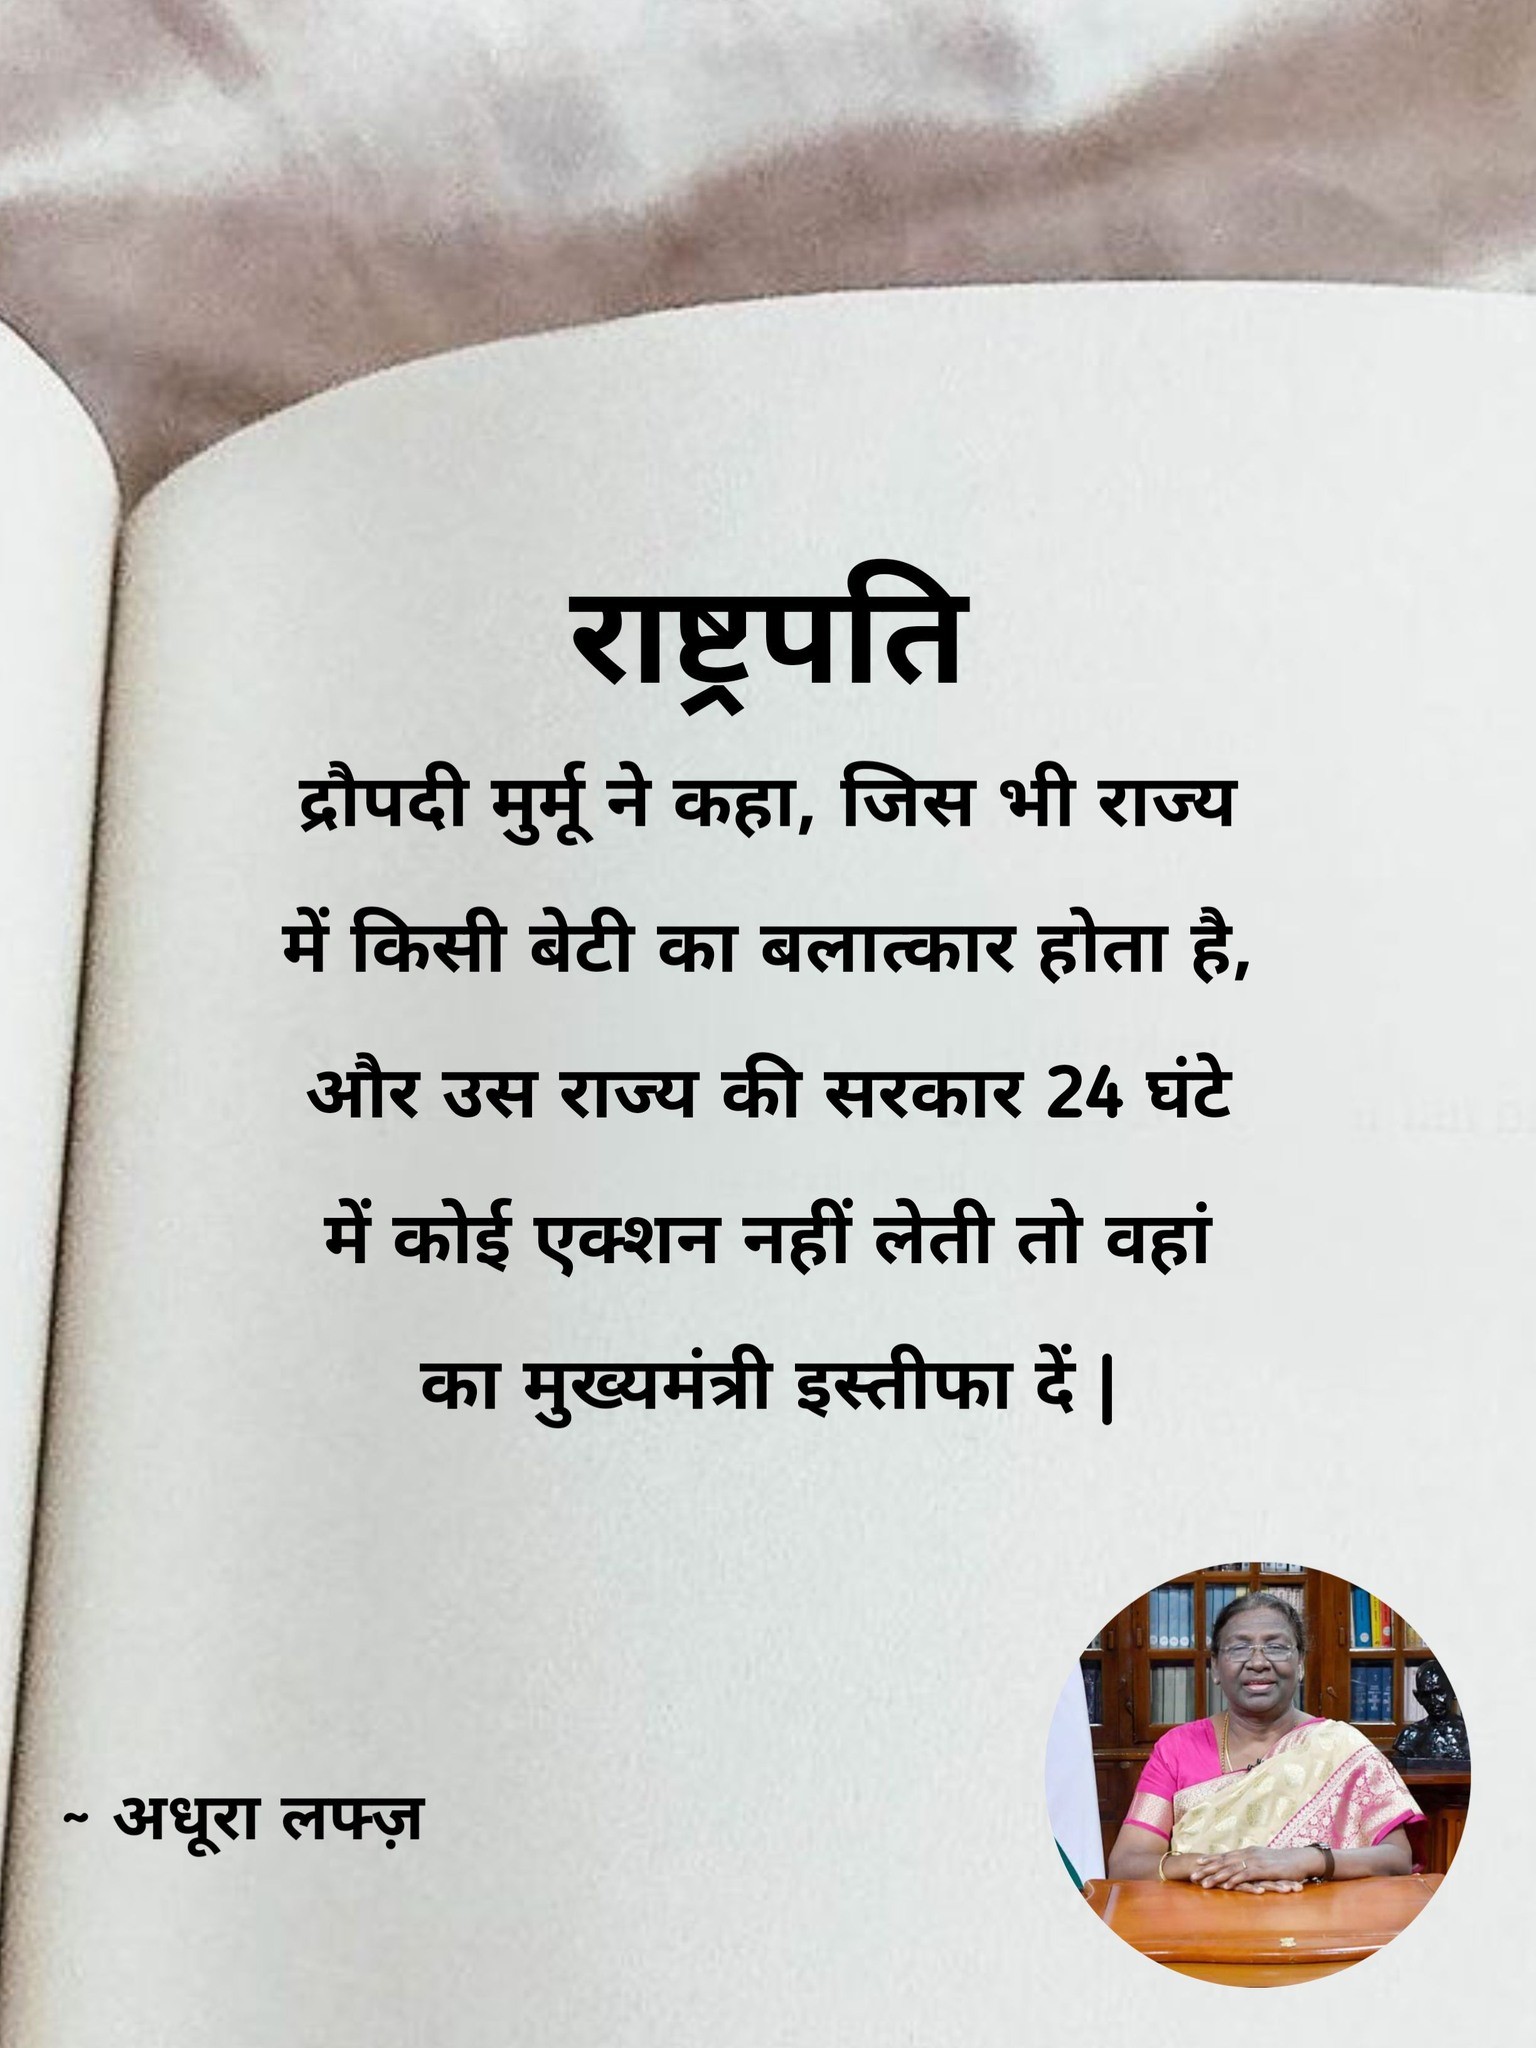 राष्ट्रपति
द्रौपदी मुर्मू ने कहा, जिस भी राज्य
में किसी बेटी का बलात्कार होता है,
और उस राज्य की सरकार 24 घंटे
में कोई एक्शन नहीं लेती तो वहां
का मुख्यमंत्री इस्तीफा दें |
~ अधूरा लफ्ज़